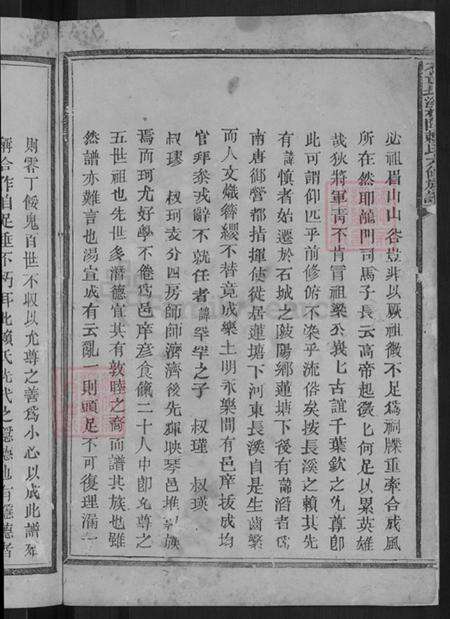 必祖眉山山谷豈非以厥祖微不足為祠牒重牽合成風
所在然耶龍門司馬子長云高帝起微匕何足以累英雄
哉狄將軍青不肯言祖梁公峩匕古誼千葉欽之允尊卽
可謂仰匹乎前修俯不染乎流俗矣按長溪之賴其先
有諱慎者始遷於石城之陂陽鄉蓮塘下後有諱滔者為
南唐御營都指揮使徙居蓮塘下河東長溪自是生齒繁
人文熾簪纓不替竟成樂土明永樂間有邑庠拔成均
官拜參戎辭不就任者諱罕罕之子 叔瑾 叔瑛
叔璎 叔珂支分四房師師濟濟後先輝映琴邑堆 族
焉而珂尤好學不倦爲邑庠彥食餼二十人中卽允尊之
五世祖也先世多潛德宜其有敦睦之裔而譜其族也雖
然譜亦難言也湯宣成有云亂一則頭足不可復理漏一
則零丁餒鬼百世不収以允尊之善為小心以成此譜
稱合作自足垂不朽耳此賴氏先代之隱德也有隱德者